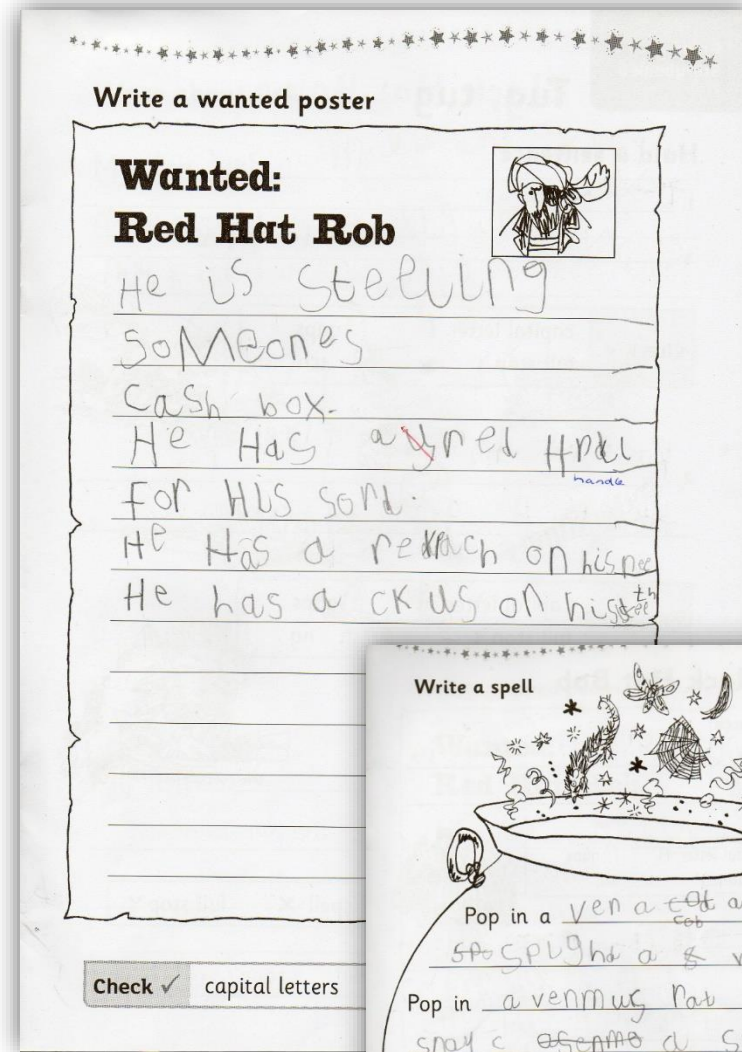 Write a wanted poster
Wanted:
Red Hat Rob
He is steeuing
someones
cash box.
He Has a red
handle
For His sord.
He Has a on his nee
He has a on his teeth
Check ✓ capital letters
Write a spell
Pop in a ven a a
cob
a
Pop in a venmus rat
a